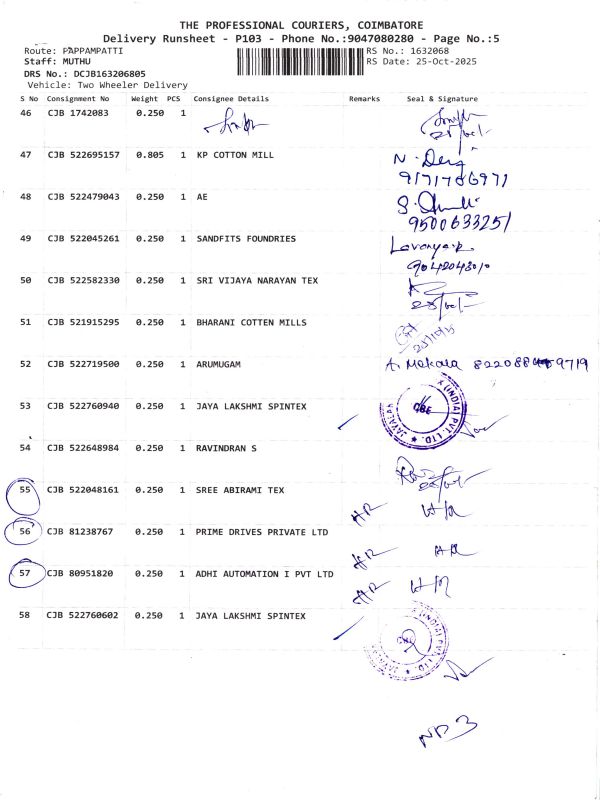 THE PROFESSIONAL COURIERS, COIMBATORE
Delivery Runsheet - P103 - Phone No.:9047080280 - Page No.:5
Route: PAPPAMPATTI
RS No.: 1632068
Staff: MUTHU
RS Date: 25-Oct-2025
DRS No.: DCJB163206805
Vehicle: Two Wheeler Delivery
S No Consignment No Weight PCS Consignee Details Remarks Seal & Signature
46 CJB 1742083 0.250 1
47 CJB 522695157 0.805 1 KP COTTON MILL
9171706971
48 CJB 522479043 0.250 1 AE
9500633251
49 CJB 522045261 0.250 1 SANDFITS FOUNDRIES
50 CJB 522582330 0.250 1 SRI VIJAYA NARAYAN TEX
51 CJB 521915295 0.250 1 BHARANI COTTEN MILLS
52 CJB 522719500 0.250 1 ARUMUGAM A. Makala
53 CJB 522760940 0.250 1 JAYA LAKSHMI SPINTEX
(INDIA) PVT. LTD. ★
CBE
54 CJB 522648984 0.250 1 RAVINDRAN S
55 CJB 522048161 0.250 1 SREE ABIRAMI TEX
HR HR
56 CJB 81238767 0.250 1 PRIME DRIVES PRIVATE LTD
HR HR
57 CJB 80951820 0.250 1 ADHI AUTOMATION I PVT LTD
HR HR
58 CJB 522760602 0.250 1 JAYA LAKSHMI SPINTEX
(INDIA) PVT. LTD. ★
CBE
ND3